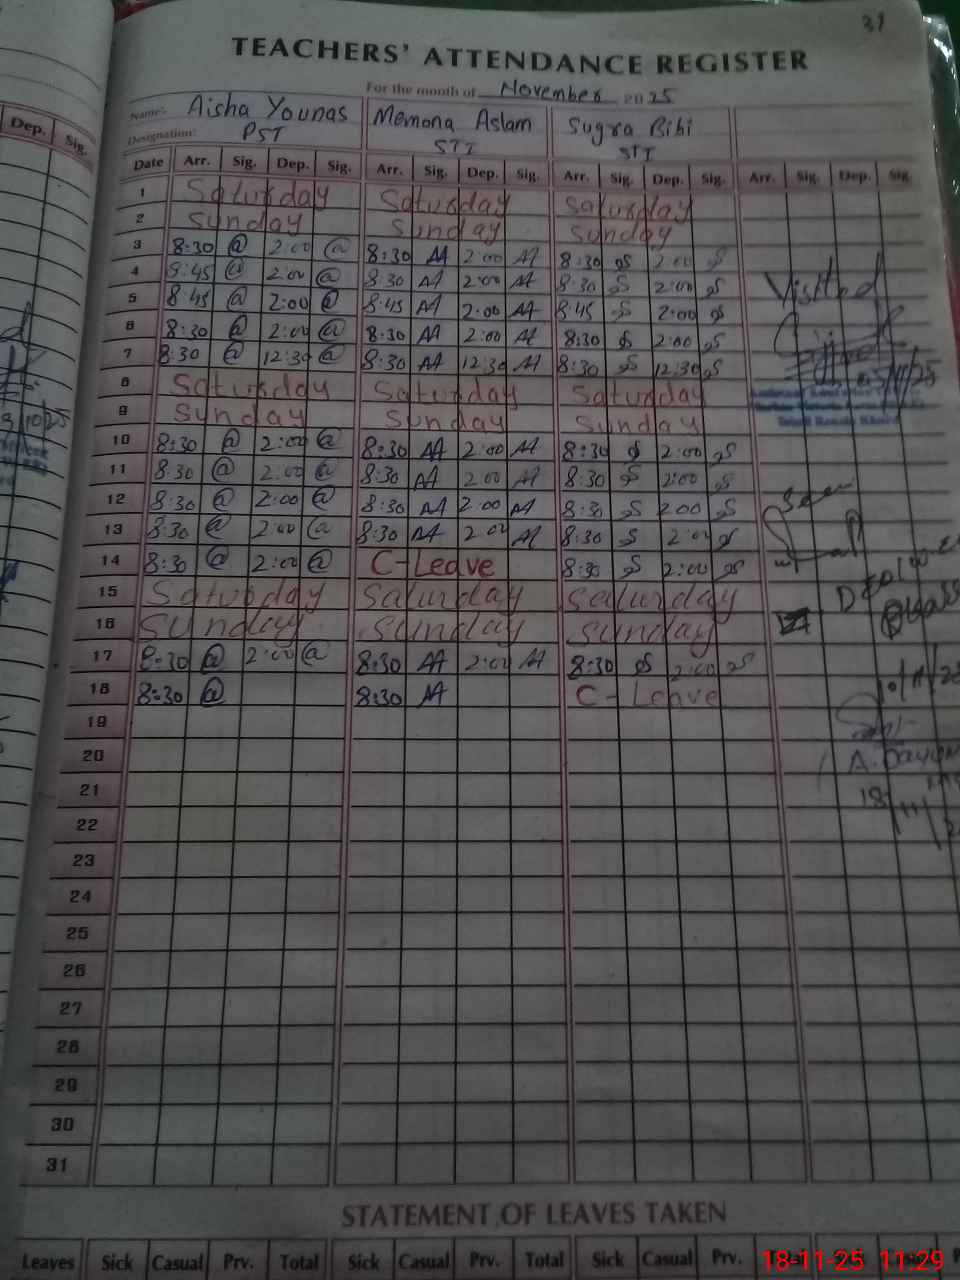 31
TEACHERS' ATTENDANCE REGISTER
For the month of November 2025
Name: Aisha Younas Memona Aslam Sugra Bibi
Designation: PST STI STI
Dep. Sig.
Date Arr. Sig. Dep. Sig. Arr. Sig. Dep. Sig. Arr. Sig. Dep. Sig. Arr. Sig. Dep. Sig
1 Saturday Saturday Saturday
2 Sunday Sunday Sunday
3 8:30 @ 2:00 @ 8:30 AA 2:00 AA 8:30 S 2:00 S
4 @ 2:00 @ 8:30 AA 2:00 AA 8:30 S 2:00 S
5 8:45 @ 2:00 @ 8:45 AA 2:00 AA 8:45 S 2:00 S
6 8:30 @ 2:00 @ 8:30 AA 2:00 AA 8:30 S 2:00 S
7 8:30 @ 12:30 @ 8:30 AA 12:30 AA 8:30 S 12:30 S
8 Saturday Saturday Saturday
9 Sunday Sunday Sunday
10 8:30 @ 2:00 @ 8:30 AA 2:00 AA 8:30 S 2:00 S
11 8:30 @ 2:00 @ 8:30 AA 2:00 AA 8:30 S 2:00 S
12 8:30 @ 2:00 @ 8:30 AA 2:00 AA 8:30 S 2:00 S
13 8:30 @ 2:00 @ 8:30 AA 2:00 AA 8:30 S 2:00 S
14 8:30 @ 2:00 @ C-Leave 8:30 S 2:00 S
15 Saturday Saturday Saturday
16 Sunday Sunday Sunday
17 8:30 @ 2:00 @ 8:30 AA 2:00 AA 8:30 S 2:00 S
18 8:30 @ 8:30 AA C-Leave
19
20
21
22
23
24
25
26
27
28
29
30
31
Visited
Seen
18/11/2
STATEMENT OF LEAVES TAKEN
Leaves Sick Casual Prv. Total Sick Casual Prv. Total Sick Casual Prv.
18-11-25 11:29